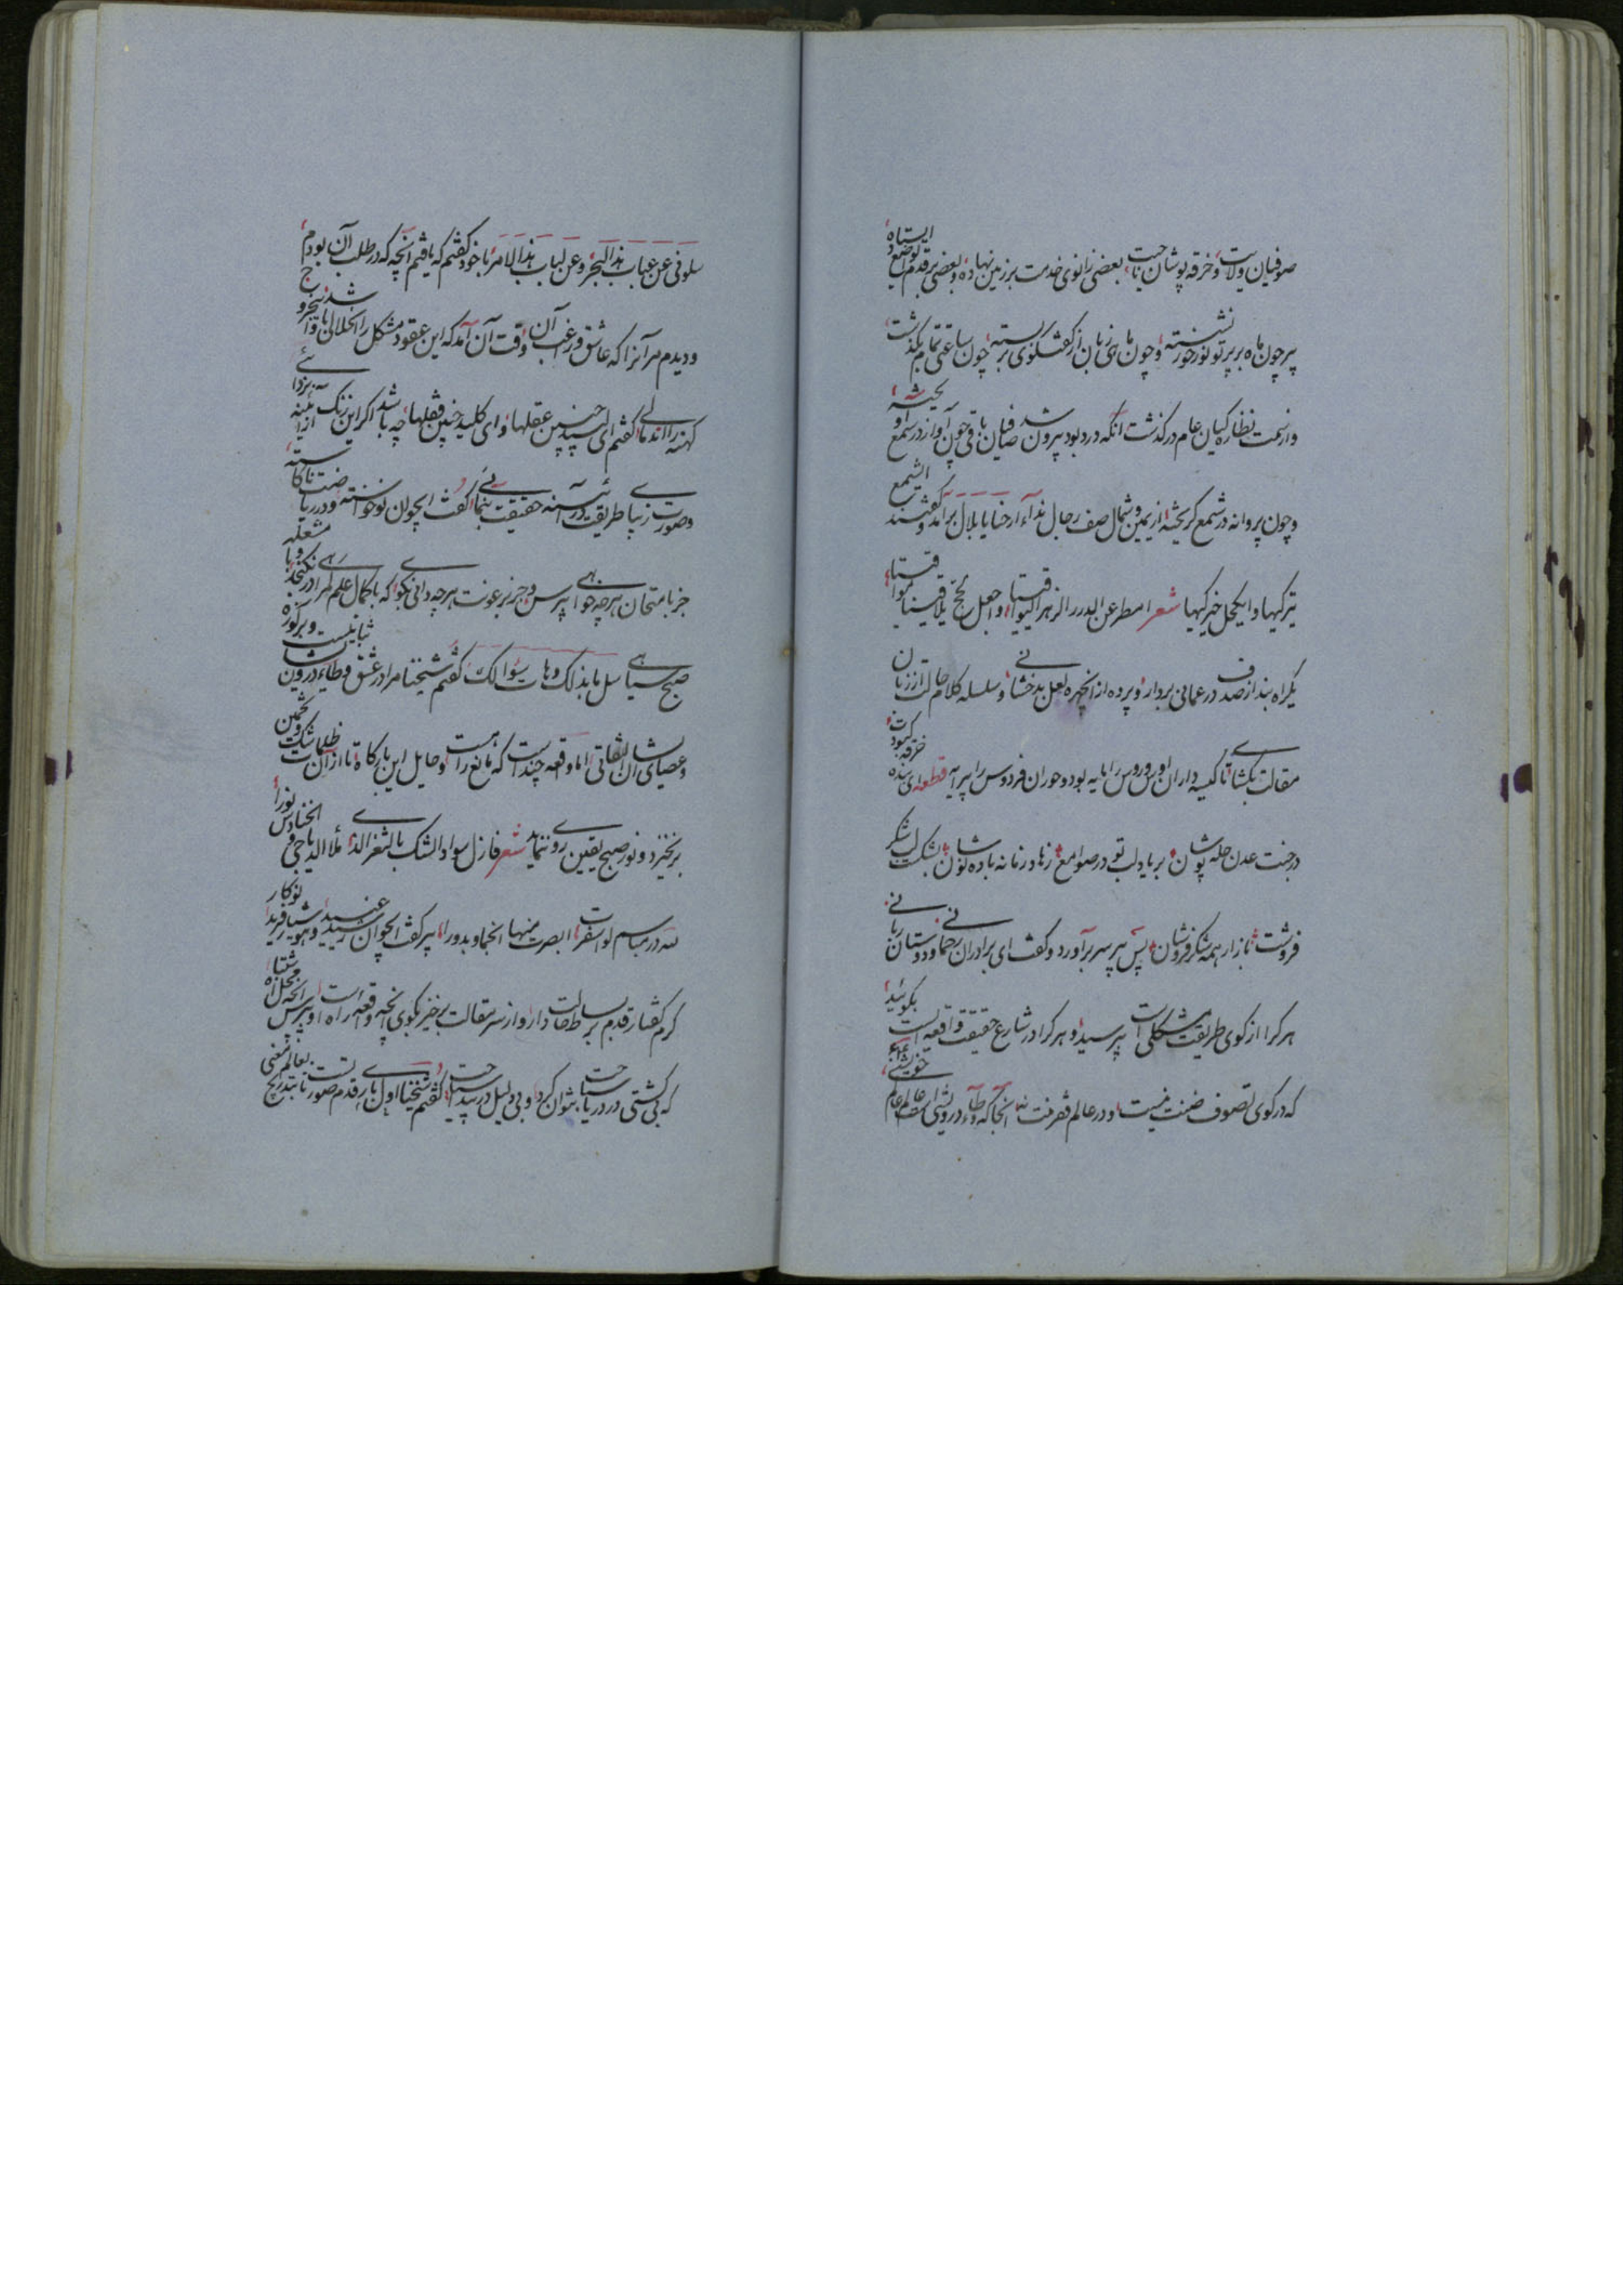 صوفیان ولایت و خرقه پوشان بعضی زانوی خدمت بر زمین نهاده و بعضی بر قدم تواضع ایستاده
پیر چون ماه بر پرتو نور خور نشسته و چون ماهی زبان از گفتگوی بربسته چون ساعتی تمام بگذشت
و از سمت نظارگیان عام درگذشت آنکه درد بود بیرون شد صافیان باقی چون آواز در سمع او
و چون پروانه در شمع گریخته از یمین و شمال صف رجال نداء ارحنا یا بلال برآمد و گفتند ایها الشمع
تیرگیها و ایکحل خیرگیها شعر امطر عن الدرر الزهر الیواقیتا و اجعل لحج تلاقینا مواقیتا
یکراه بند از صدف در عمانی بردار و پرده از چهره لعل بدخشانی و سلسله کلام حال از زبان
مقالت بکشای تا کیسه داران اوس و روس را مایه بود و حوران فردوس را پیرایه قطعه ای بنده خرقه کبودت
در جنت عدن حله پوشان بر یاد لب تو در صوامع زهاد زمانه باده نوشان بشکست لب شکر
فروشت بازار همه شکر فروشان پس پیر سر برآورد و گفت ای برادران رحمانی و دوستان ربانی
هر کرا از کوی طریقت مشکلی است بپرسید و هر کرا در شارع حقیقت واقعه ایست بگوئید
که در کوی تصوف ضنت نیست و در عالم فقر منت نه آنجا که وطاء درویشی
سلونی عن عباب هذا البحر و عن لباب هذا الامر با خود گفتم که یافتم آنچه که در طلب آن بودم
و دیدم مر آنرا که عاشق و راغب آن وقت آن آمد که این عقود مشکل را انحلالی باشد و این جروح
کهنه را اندمالی گفتم ای سپید چنین عقلها و ای کلید چنین قفلها چه باشد اگر این زنگ از آئینه بزدائی
و صورت زیبای طریقت در آئینه حقیقت بنمائی گفت ای جوان نوخواسته و در ریاضت ناکاسته
جز بامتحان هر چه خواهی بپرس و جز برعونت هر چه دانی بگو که با کمال علم لمرا در نگنجد و با مشعله
صبح سیاهی سل ما بذلک و هات سؤالک گفتم شیخنا مرا در عشق وطاء درویشان ثباتیست و بر کوزه
و عصای ایشان التفاتی اما واقعه چند است که مانع راهست و حایل این بارگاه تا از آن ظلمات شک و تخمین
برنخیزد و نور صبح یقین روی ننماید شعر فازل سواد الشک بالثغر الذی ملأ الدیاجی و الحنادس نورا
لله در مباسم لو اسفرت ابصرت منها انجما و بدورا پیر گفت ای جوان رسیدی
گرم گفتار قدم بر بساط حالت دار و از سر مقالت برخیز بگوی آنچه واقعه راه است و بپرس آنچه محل اشتباه
که بی کشتی در دریا سباحت نتوان کرد و بی دلیل در بیدا سیاحت گفتم شیخنا اول باری قدم صورتست تا بتدریج بعالم معنی